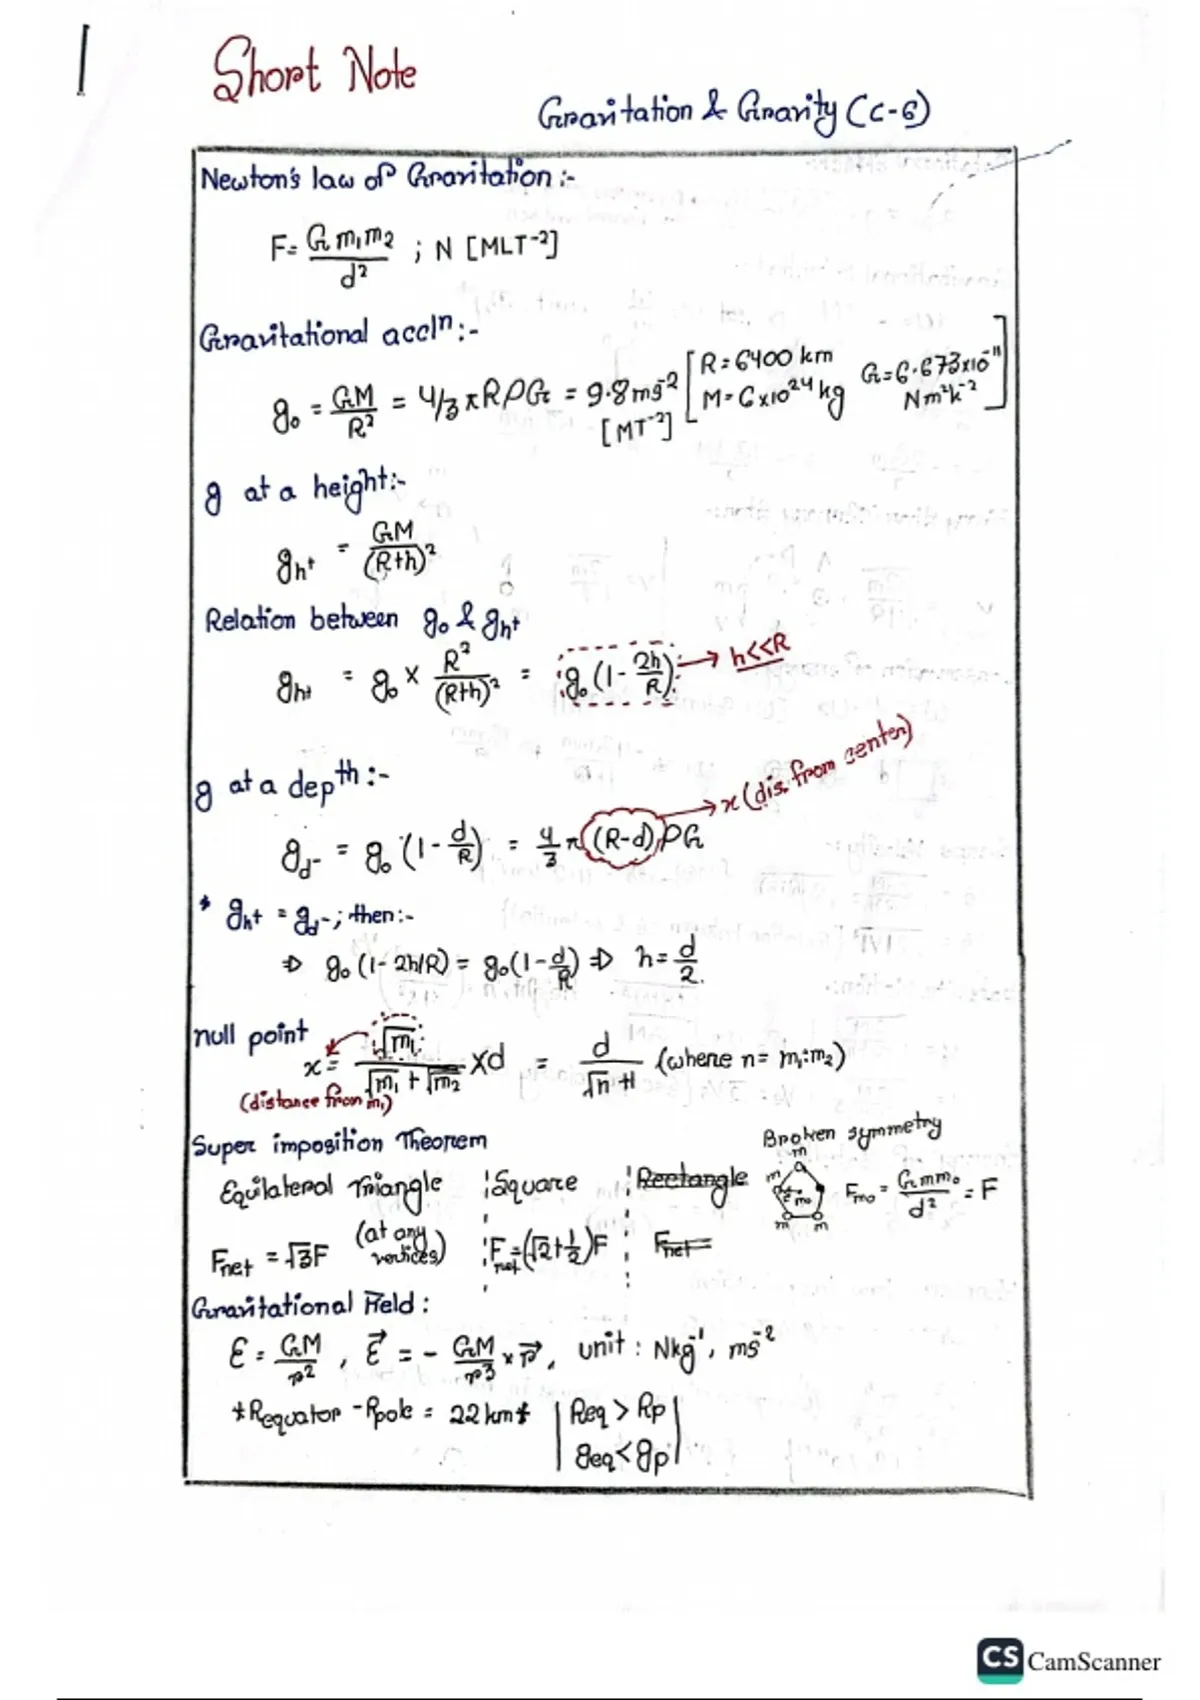 1
Short Note
Gravitation & Gravity (C-6)
Newton's law of Gravitation :-
F = G m₁m₂ / d² ; N [MLT⁻²]
Gravitational accⁿ :-
g₀ = GM / R² = 4/3 πRρG = 9.8 ms⁻² [MT⁻²] [R = 6400 km M = 6x10²⁴ kg G = 6.673x10⁻¹¹ Nm²k⁻²]
g at a height:-
gh↑ = GM / (R+h)²
Relation between g₀ & gh↑
gh↑ = g₀ × R² / (R+h)² = g₀ (1 - 2h/R) → h<<R
g at a depth :-
gd- = g₀ (1 - d/R) = 4/3 π (R-d) ρG → x (dis. from center)
* gh↑ = gd- ; then :-
⇒ g₀ (1 - 2h/R) = g₀ (1 - d/R) ⇒ h = d/2.
null point
x = √m₁ / (√m₁ + √m₂) × d = d / (√n + 1) (where n = m₁:m₂)
(distance from m₁)
Super imposition Theorem
Broken symmetry
Equilateral Triangle Square Rectangle
m m m m F m₀ Fm₀ = G m m₀ / d² = F
Fnet = √3F (at any vertices) Fnet = (√2 + 1/2)F Fnet =
Gravitational Field :
E = GM / r² , E⃗ = - GM / r³ × r⃗, unit : Nkg⁻¹, ms⁻²
*Requator - Rpole = 22 km* | Req > Rp |
| geq < gp |
CS CamScanner